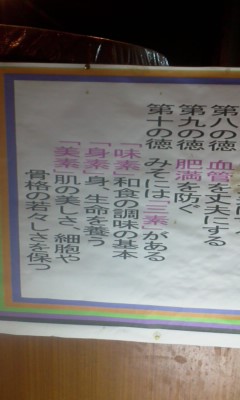 第八の徳 血管を丈夫にする
第九の徳 肥満を防ぐ
第十の徳 みそには「三素」がある
「味素」和食の調味の基本
「身素」身、生命を養う
「美素」肌の美しさ、細胞や
骨格の若々しさを保つ